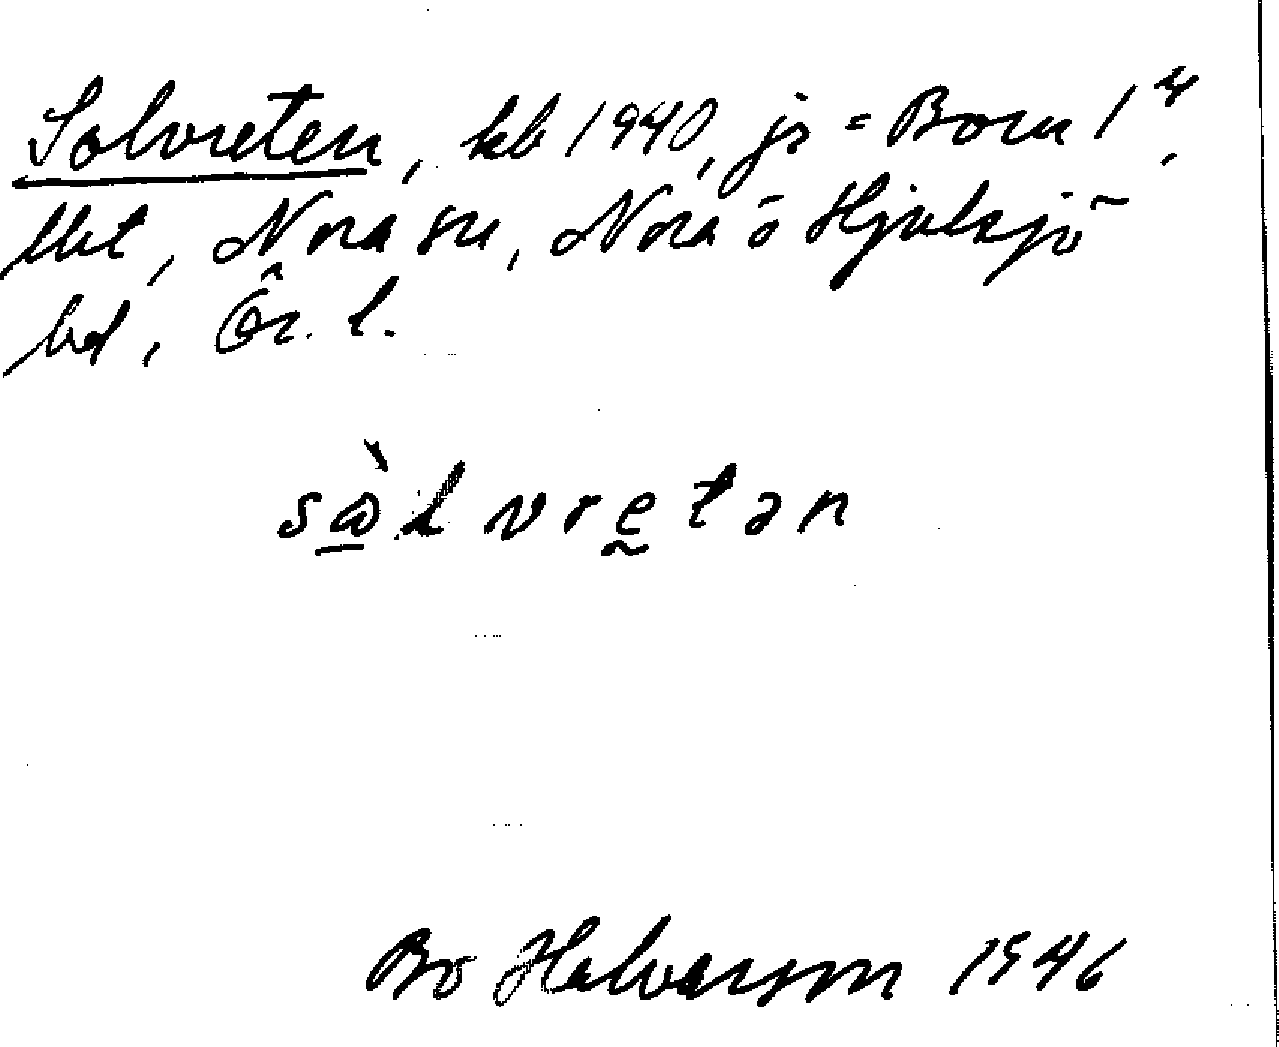 Solvreten, kb 1940, js = Born 1⁴,
lht, Nora sn, Nora o Hjulsjö
bd, Ör. l.
sὼlvretən
Bo Halvarson 1946